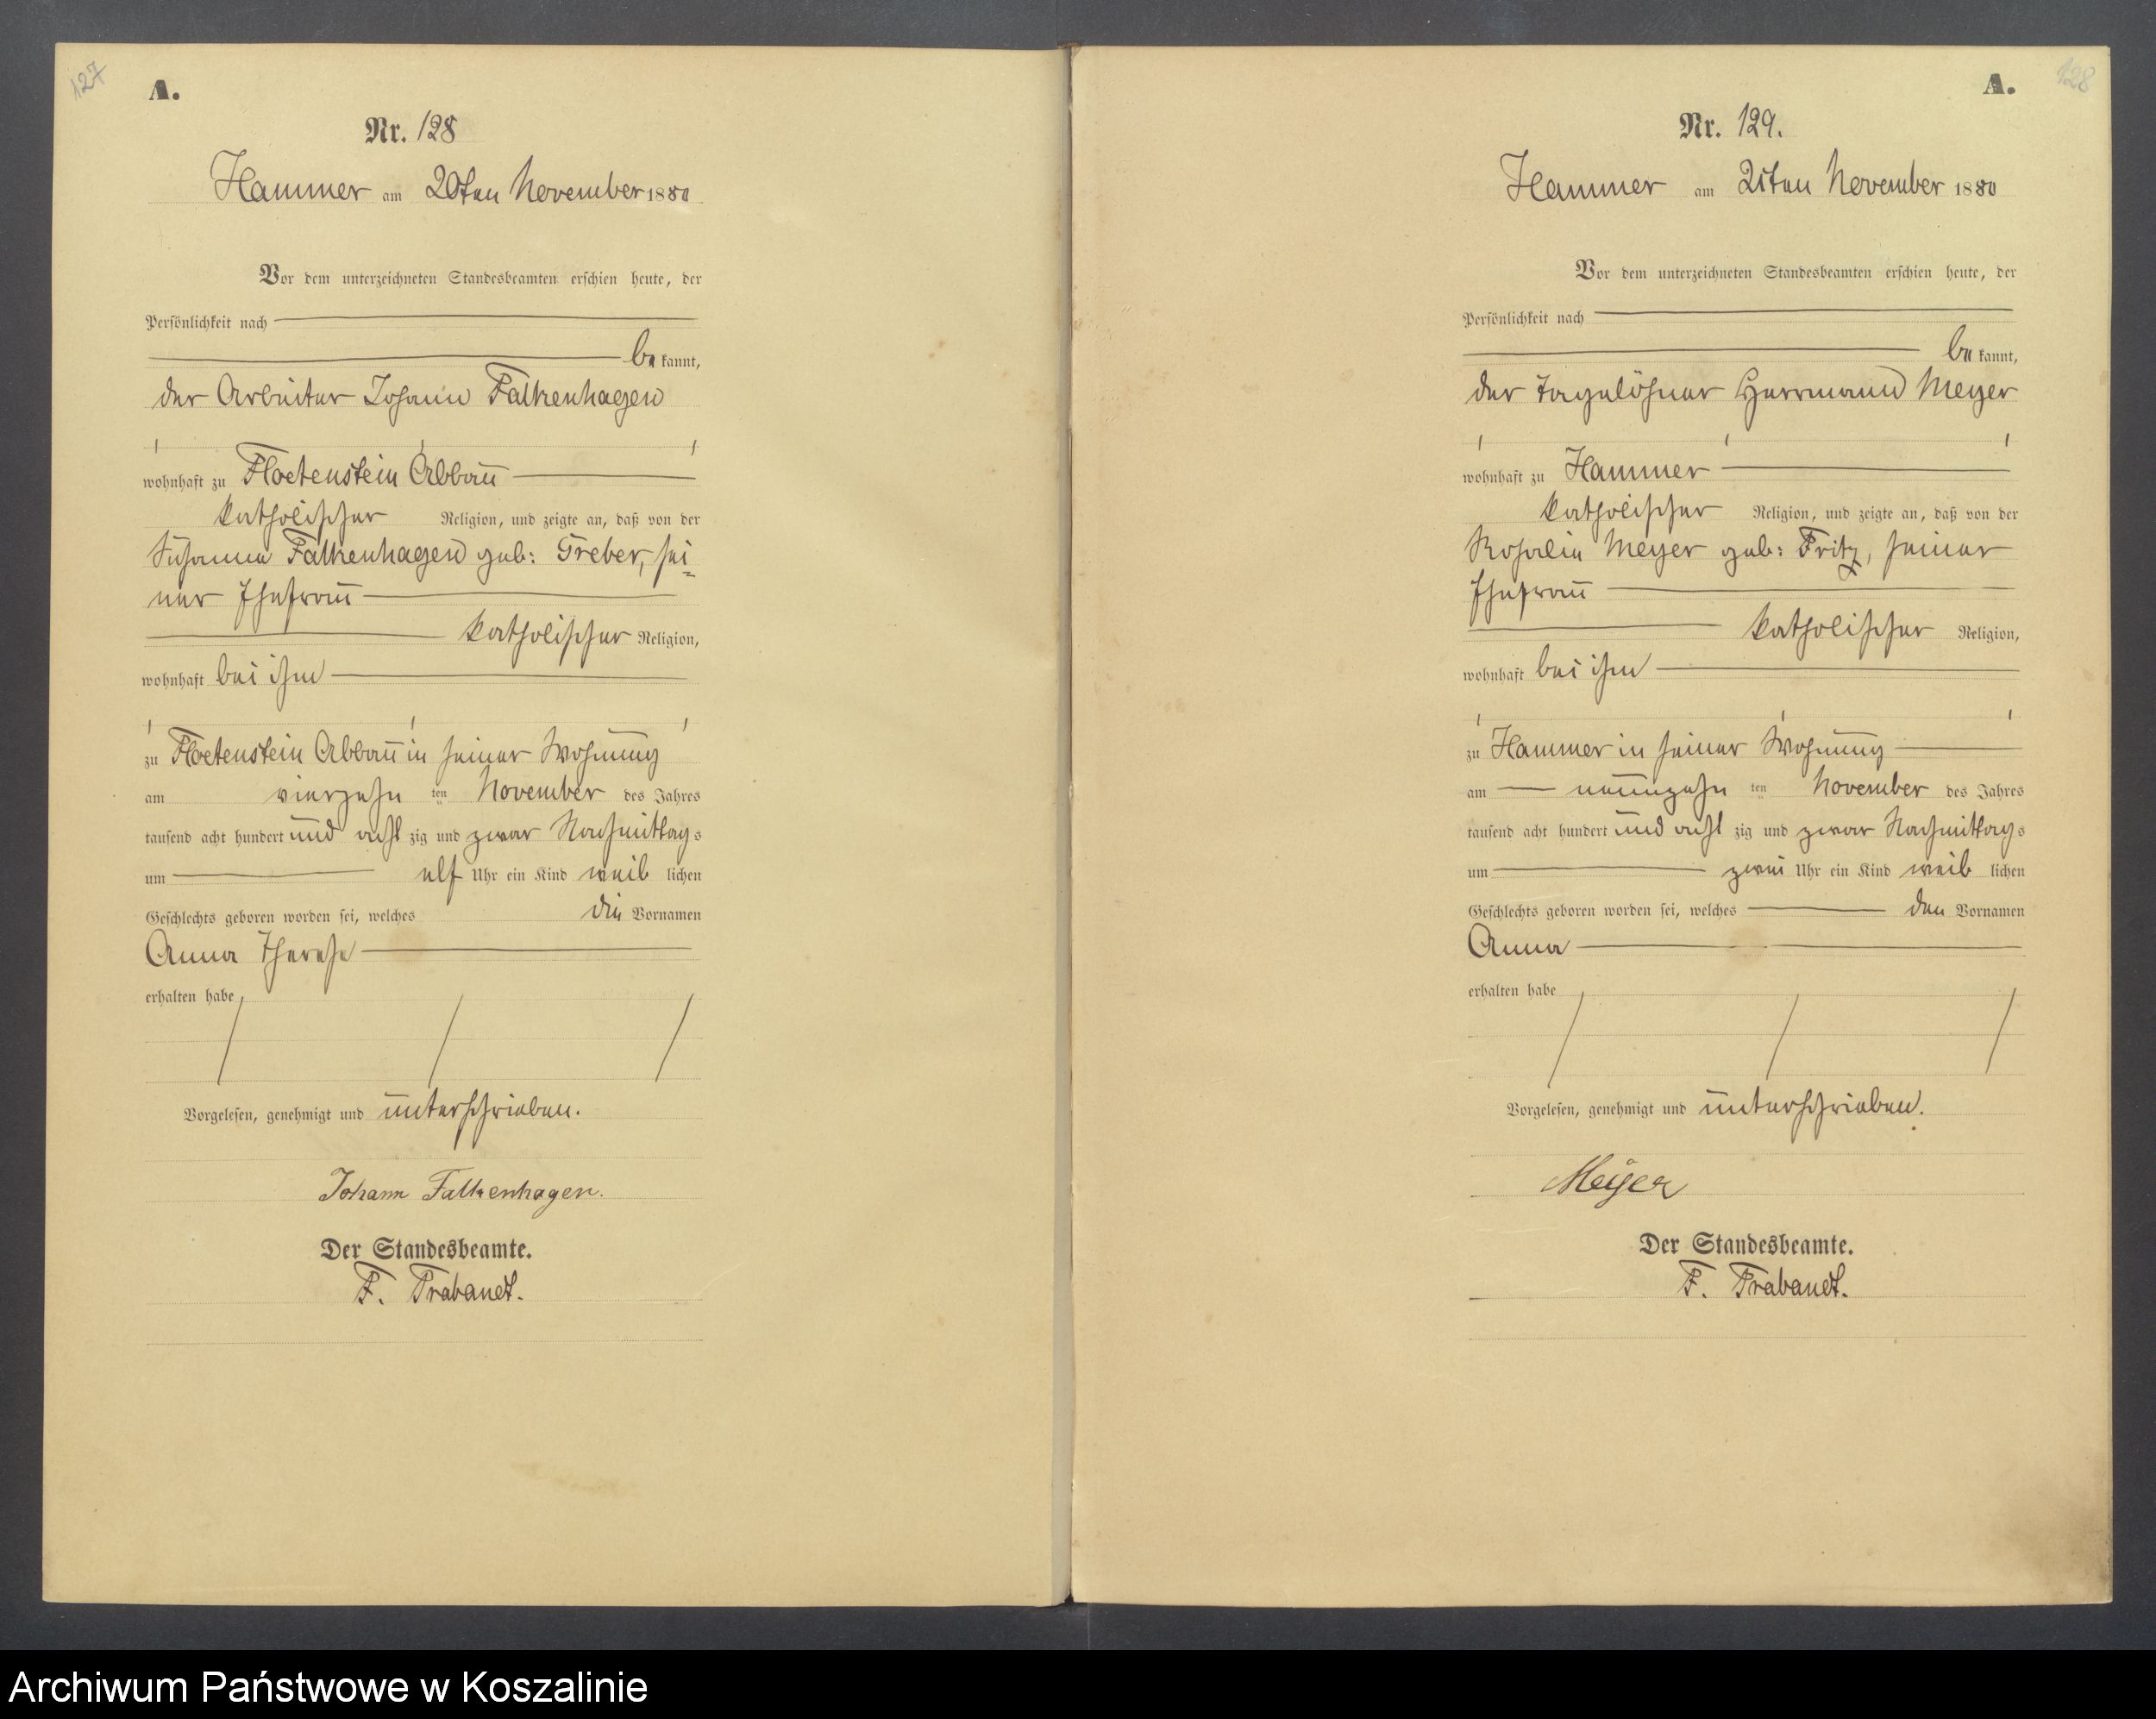 127
A.
Nr. 128
Hammer am 20ten November 1880
Vor dem unterzeichneten Standesbeamten erschien heute, der
Persönlichkeit nach
be kannt,
der Arbeiter Johann Falkenhagen
wohnhaft zu Floetenstein Abbau
katholischer Religion, und zeigte an, daß von der
Susanna Falkenhagen geb: Treber, sei-
ner Ehefrau
katholischer Religion,
wohnhaft bei ihm
zu Floetenstein Abbau in seiner Wohnung
am vierzehn ten November des Jahres
tausend acht hundert und acht zig und zwar Nachmittag s
um elf Uhr ein Kind weib lichen
Geschlechts geboren worden sei, welches die Vornamen
Anna Therese
erhalten habe
Vorgelesen, genehmigt und unterschrieben.
Johann Falkenhagen.
Der Standesbeamte.
F. Trabandt.
128
A.
Nr. 129.
Hammer am 21ten November 1880
Vor dem unterzeichneten Standesbeamten erschien heute, der
Persönlichkeit nach
be kannt,
der Tagelöhner Herrmann Meyer
wohnhaft zu Hammer
katholischer Religion, und zeigte an, daß von der
Rosalie Meyer geb: Fritz, seiner
Ehefrau
katholischer Religion,
wohnhaft bei ihm
zu Hammer in seiner Wohnung
am neunzehn ten November des Jahres
tausend acht hundert und acht zig und zwar Nachmittag s
um zwei Uhr ein Kind weib lichen
Geschlechts geboren worden sei, welches den Vornamen
Anna
erhalten habe
Vorgelesen, genehmigt und unterschrieben.
Meyer
Der Standesbeamte.
F. Trabandt.
Archiwum Państwowe w Koszalinie